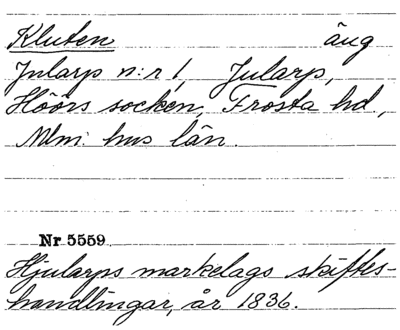 Kluten äng
Jularp n:r 1, Jularp,
Höörs socken, Frosta hd,
Mlm: hus län.
Nr 5559
Hjularps markelags skiftes-
handlingar, år 1836.